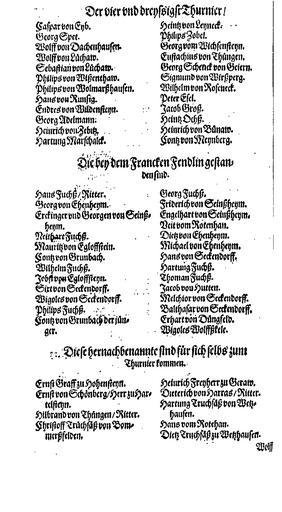 Der vier vnd dreyssigst Thurnier/
Caspar von Eyb.
Georg Spet.
Wolff von Dachenhausen.
Wolff von Lüchaw.
Sebastian von Lüchaw.
Philips von Wißenthaw.
Philips von Wolmarßhausen.
Hans von Rünsig.
Endres von Wildensteyn.
Georg Adelmann.
Heinrich von Zebitz.
Hartung Marschalck.
Heintz von Leyneck.
Philips Zobel.
Georg vom Wichsensteyn.
Eustachius von Thüngen.
Georg Schenck von Geiern.
Sigmund von Wirßperg.
Wilhelm von Roseneck.
Peter Esel.
Jacob Groß.
Heintz Ochß.
Heinrich von Bünaw.
Contz von Meyberg.
Die bey dem Francken Fendlin gestan-
den sind.
Hans Fuchß/ Ritter.
Georg von Ehenheym.
Erckinger vnd Georgen von Seinß-
heym.
Neithart Fuchß.
Mauritz von Egloffsteyn.
Contz von Grunbach.
Wilhelm Fuchß.
Jobst von Egloffsteyn.
Sixt von Seckendorff.
Wigoles von Seckendorff.
Philips Fuchß.
Contz von Grunbach der jün-
ger.
Georg Fuchß.
Friderich von Seinßheym.
Engelhart von Seinßheym.
Veit vom Rotenhan.
Dietz von Ehenheym.
Michael von Ehenheym.
Hans von Seckendorff.
Hartung Fuchß.
Thoman Fuchß.
Jacob von Hutten.
Melchior von Seckendorff.
Balthasar von Seckendorff.
Erhart von Düngfeld.
Wigoles Wolffßkele.
Diese hernachbenannte sind für sich selbs zum
Thurnier kommen.
Ernst Graff zu Hohensteyn.
Ernst von Schönberg/ Herr zu Har-
telsteyn.
Hilbrand von Thüngen/ Ritter.
Christoff Truchsäß von Bom-
merßfelden.
Heinrich Freyherr zu Geraw.
Dieterich von Harras/ Ritter.
Hartung Truchsäß von Wetz-
hausen.
Hans vom Rotehan.
Dietz Truchsäß zu Wetzhausen.
Wolff